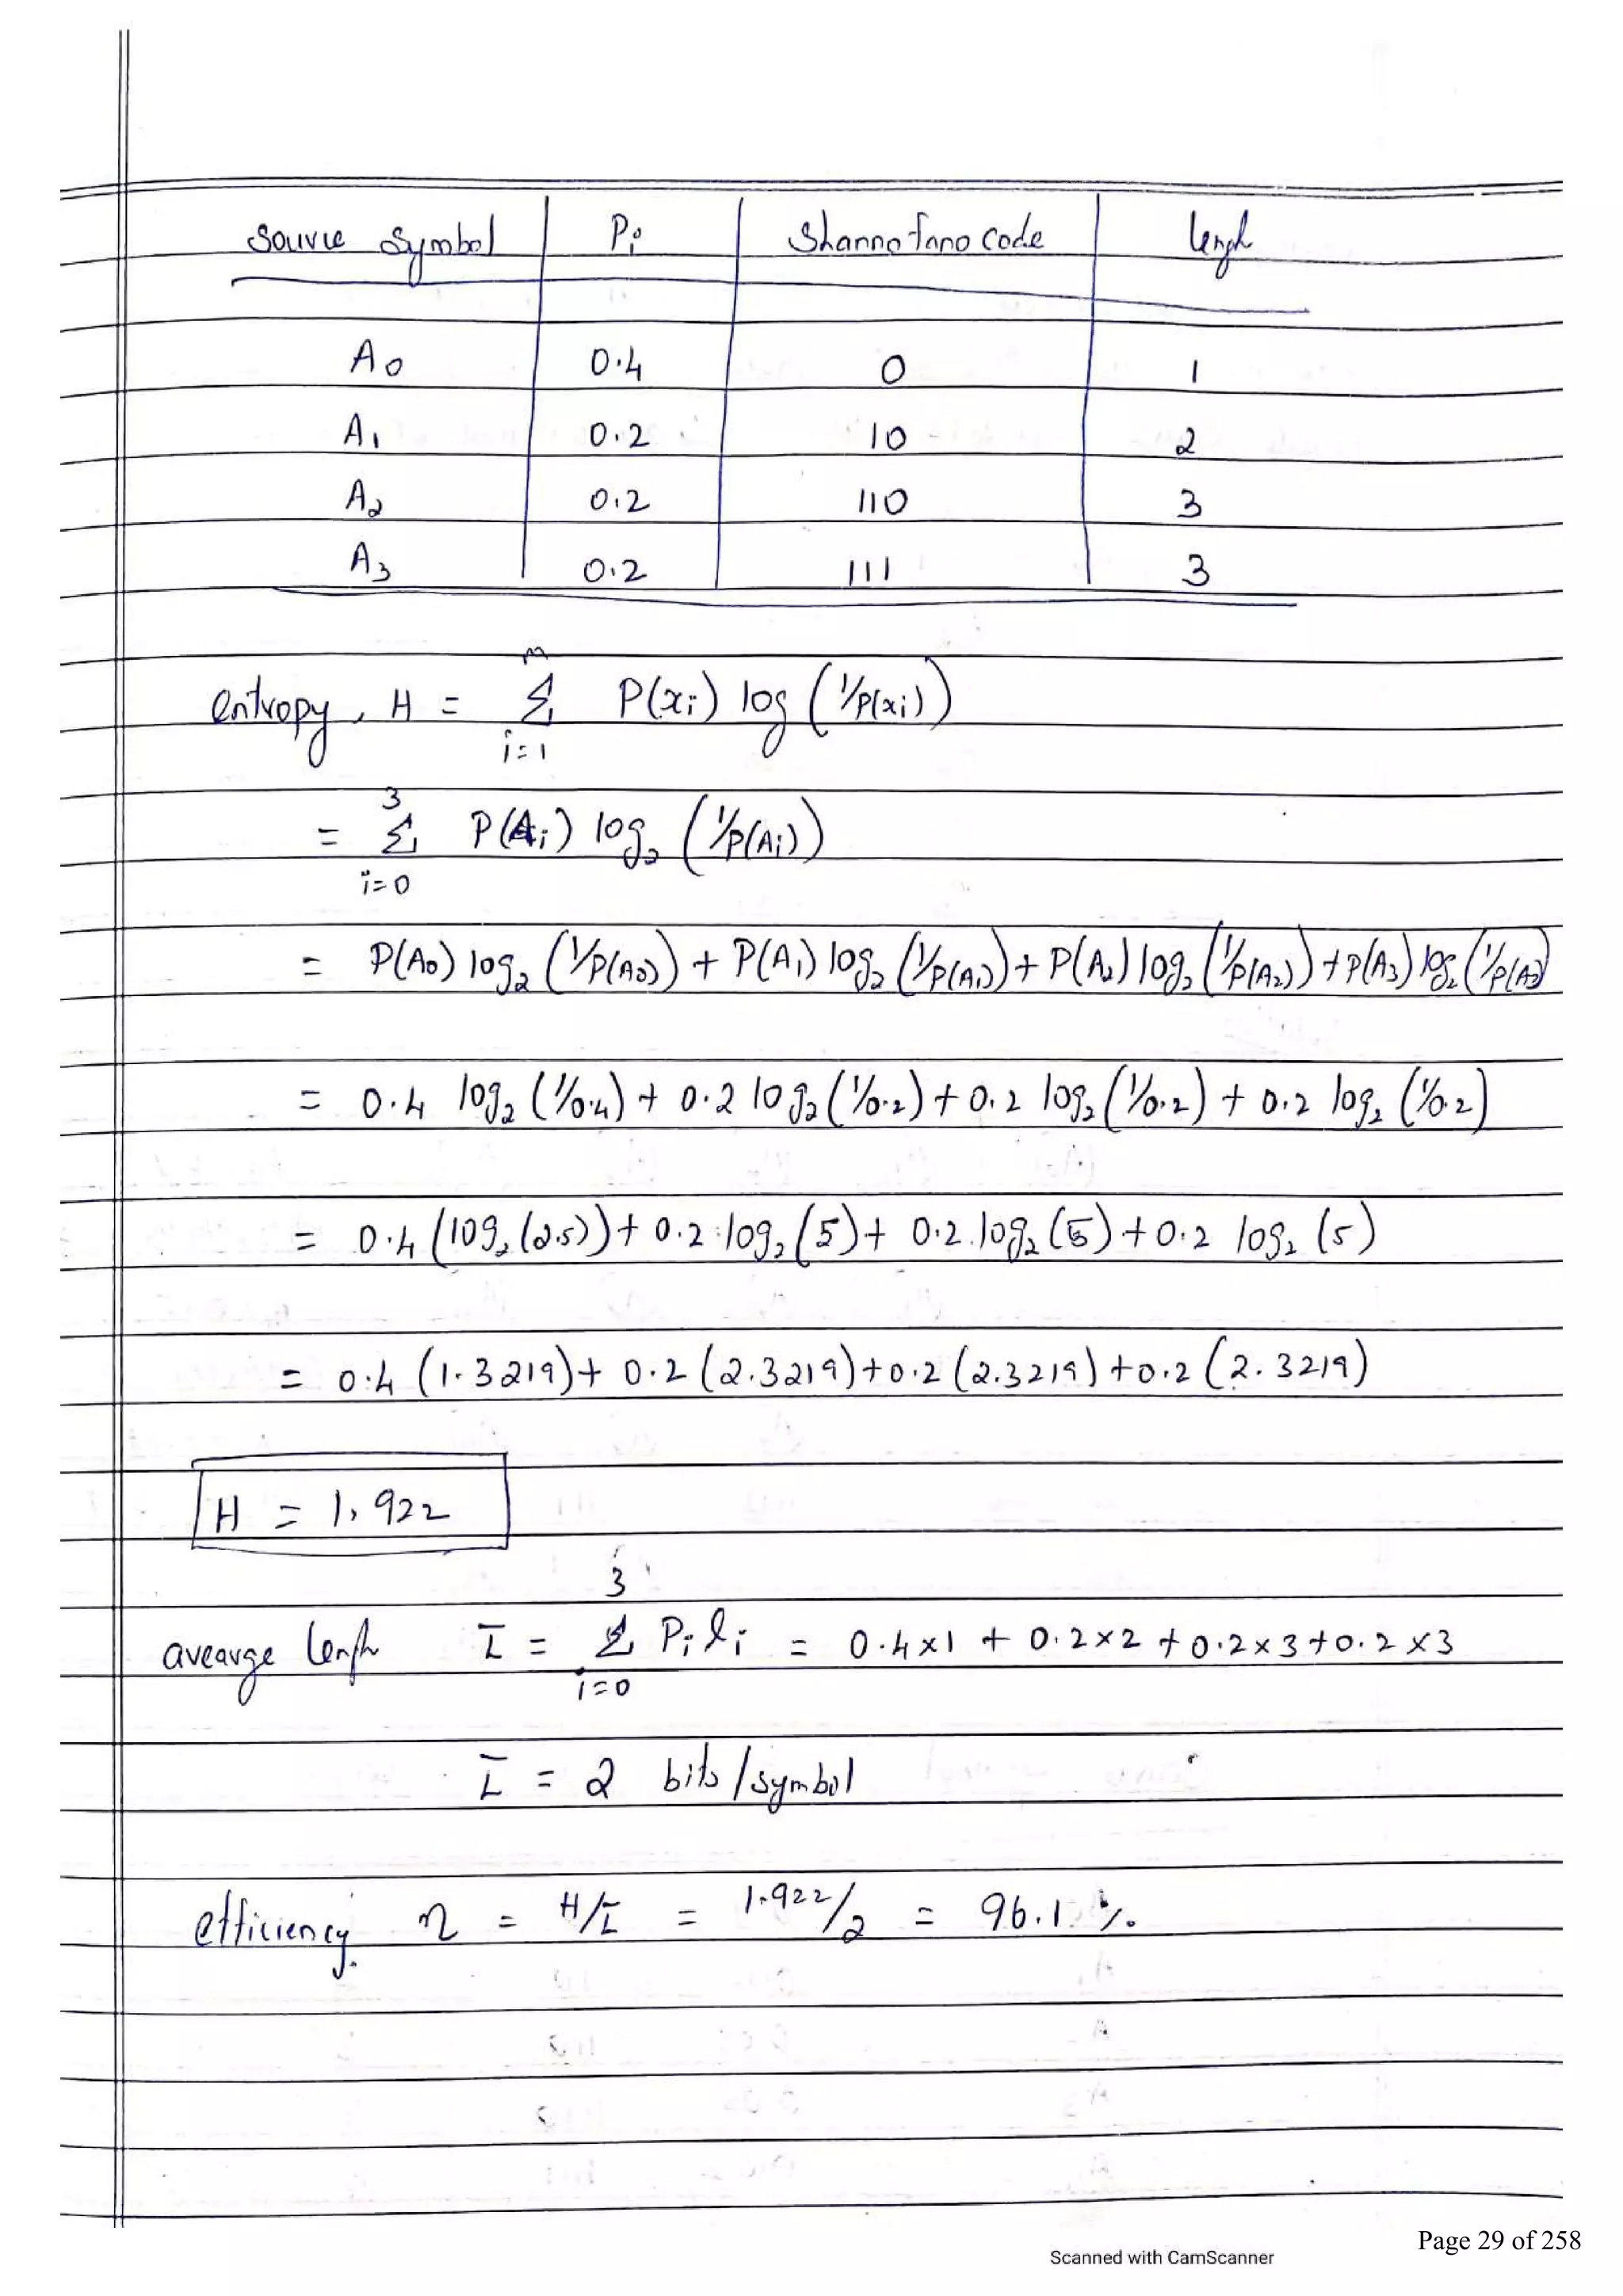 Source Symbol Pi Shanno Fano Code lengh
A0 0.4 0 1
A1 0.2 10 2
A2 0.2 110 3
A3 0.2 111 3
entropy, H = Σ_{i=1}^{m} P(xi) log (1/P(xi))
= Σ_{i=0}^{3} P(Ai) log₂ (1/P(Ai))
= P(A0) log₂ (1/P(A0)) + P(A1) log₂ (1/P(A1)) + P(A2) log₂ (1/P(A2)) + P(A3) log₂ (1/P(A3)
= 0.4 log₂ (1/0.4) + 0.2 log₂ (1/0.2) + 0.2 log₂ (1/0.2) + 0.2 log₂ (1/0.2)
= 0.4 (log₂ (2.5)) + 0.2 log₂ (5) + 0.2 log₂ (5) + 0.2 log₂ (5)
= 0.4 (1.3219) + 0.2 (2.3219) + 0.2 (2.3219) + 0.2 (2.3219)
H = 1.922
avearge lengh L̄ = Σ_{i=0}^{3} Pi li = 0.4×1 + 0.2×2 + 0.2×3 + 0.2×3
L̄ = 2 bits/symbol
efficiency η = H/L̄ = 1.922/2 = 96.1 %
Page 29 of 258
Scanned with CamScanner